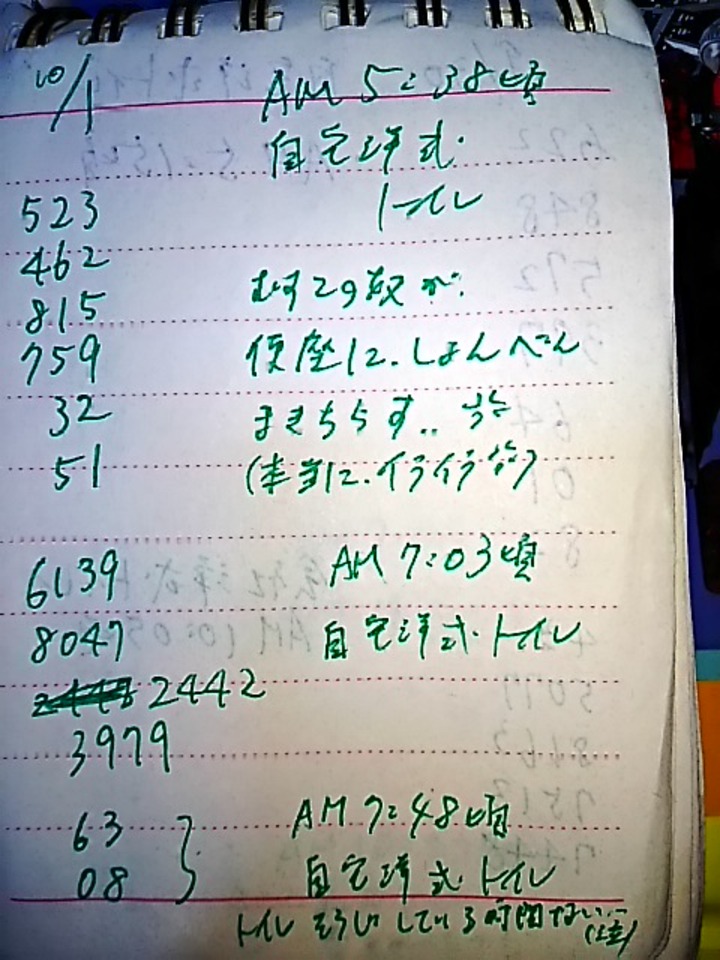 10/1 AM 5:38頃
自宅洋式
トイレ
523
462
815
759
32
51
むすこの奴が、
便座に、しょんべん
まきちらす‥
(本当に、イライラ
6139
8047
2442
3979
AM 7:03頃
自宅洋式・トイレ
63
08
AM 7:48頃
自宅洋式・トイレ
トイレそうじしている時間ない…